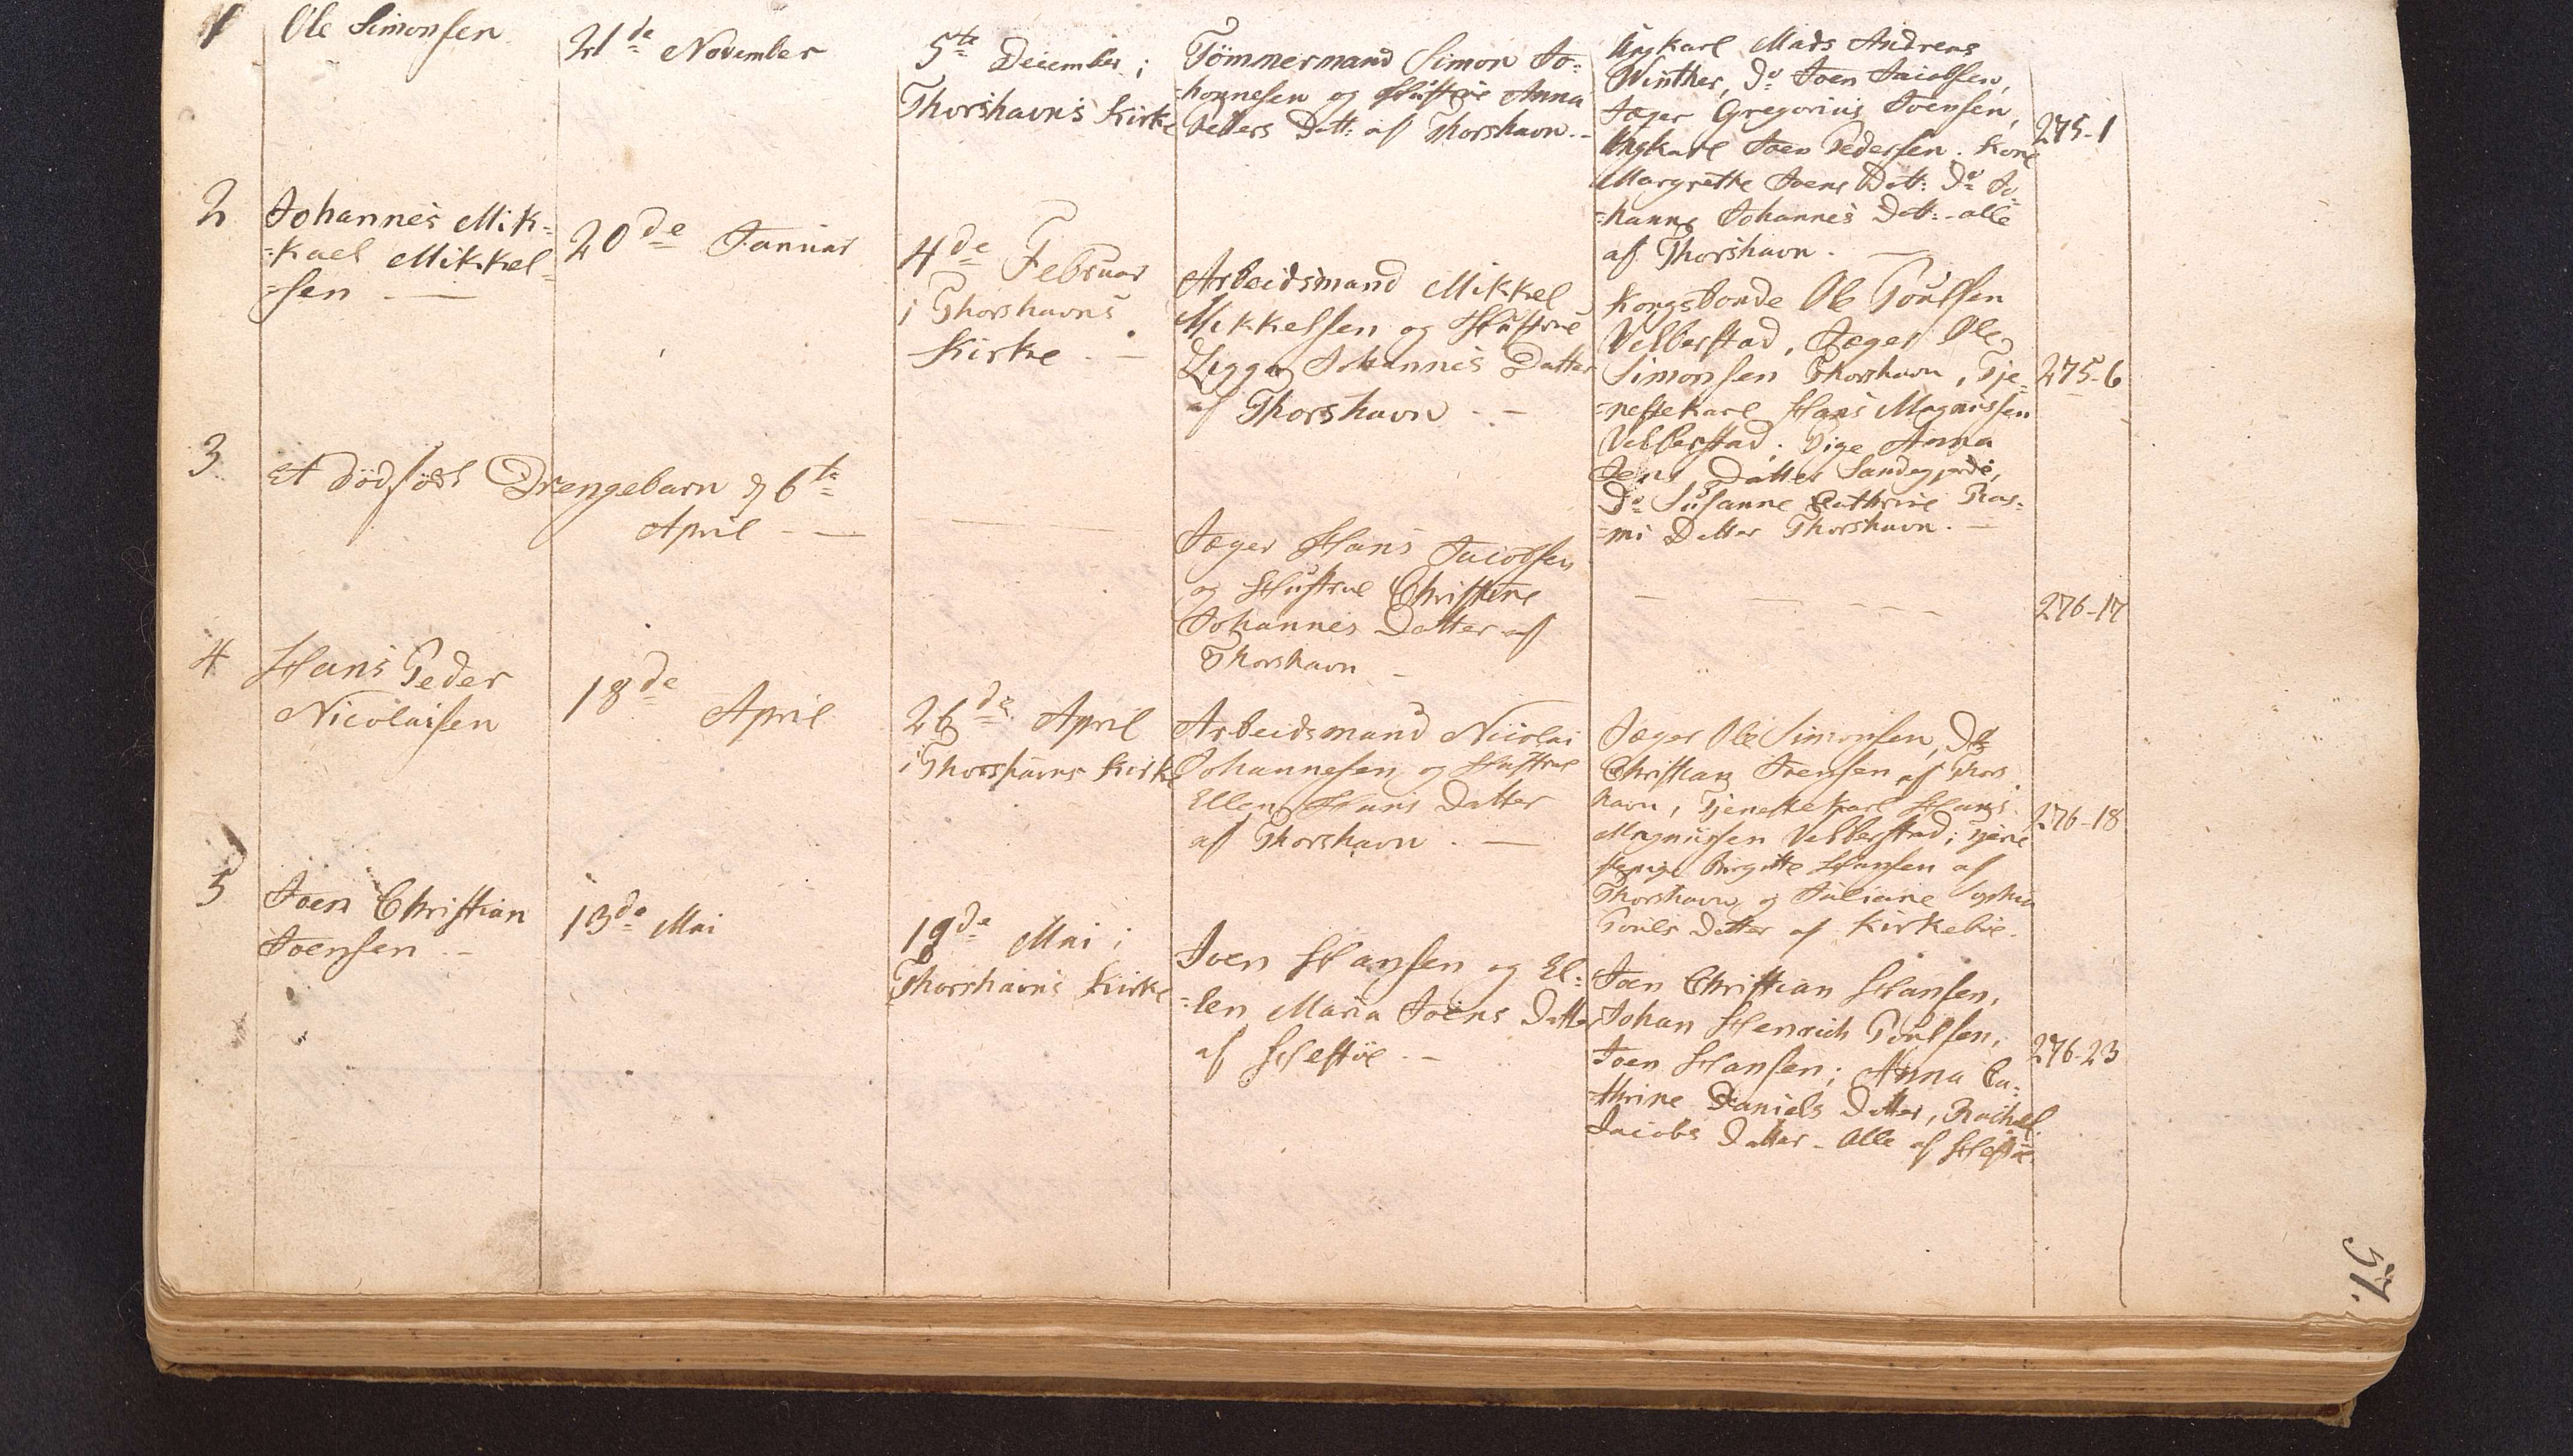 1
Ole Simonsen
21de November
5te December i
Thorshavns Kirke
Tömmermand Simon Jo=
=hannesen og Hustrue Anna
Peders Datt: af Thorshavn.-
Ungkarl Mads Andreas
Winther, Do Joen Jacobsen,
Jæger Gregorius Joensen,
Ungkarl Joen Pedersen. Kone
Margrethe Joens Datt: Do Jo=
=hanne Johannes Datt:- alle
af Thorshavn.
275-1
2
Johannes Mik=
=kael Mikkel=
=sen -
20de Januar
4de Februar
i Thorshavns
Kirke.-
Arbeidsmand Mikkel
Mikkelsen og Hustrue
Zigga Johannes Datter
af Thorshavn.-
Kongsbonde Ole Poulsen
Velberstad, Jæger Ole
Simonsen Thorshavn, Tje=
=nestekarl Hans Magnussen
Velberstad. Pige Anna
Jens Datter Sandegjerde,
Do Susanne Cathrine Ras=
=mi Datter Thorshavn.-
275-6
3
Et dödfödt Drengebarn d 6te
April -
Jæger Hans Jacobsen
og Hustrue Christine
Johannes Datter af
Thorshavn -
276-17
4
Hans Peder
Nicolaisen
18de April
26de April
i Thorshavns Kirke
Arbeidsmand Nicolai
Johannesen og Hustrue
Ellen Hans Datter
af Thorshavn.-
Jæger Ole Simonsen, Do
Christian Joensen af Thors
havn, Tjenestekarl Hans
Magnussen Velberstad; Tjene
stepige Birgitte Hansen af
Thorshavn og Juliane Sophia
Pouls Datter af Kirkebøe.
276-18
5
Joen Christian
Joensen.-
13de Mai
19de Mai i
Thorshavns Kirke
Joen Hansen og El=
=len Maria Joens Datter
af Hestöe.-
Joen Christian Hansen,
Johan Henrich Poulsen,
Joen Hansen; Anna Ca=
=thrine Daniels Datter, Rachel
Jacobs Datter - Alle af Hestöe.
276-23
57.